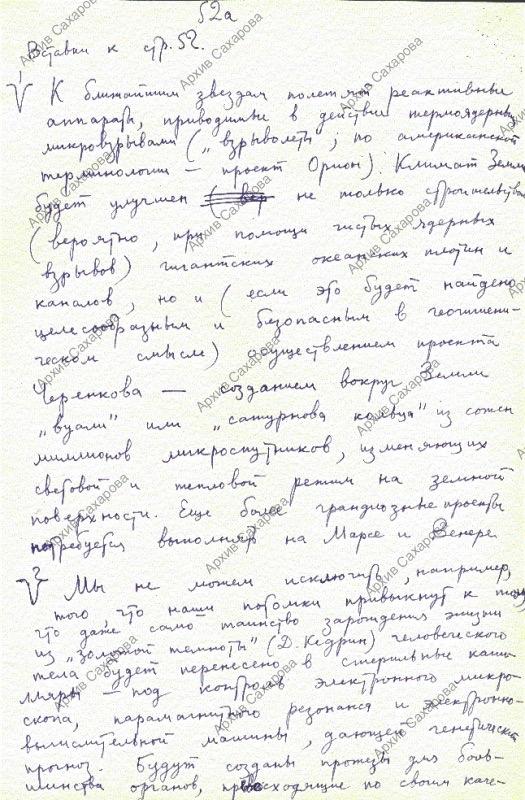 52а
Вставки к стр. 52.
V¹ К ближайшим звездам полетят реактивные
аппараты, приводимые в действие термоядерными
микровзрывами („взрыволеты”; по американской
терминологии — проект Орион). Климат Земли
будет улучшен не только строительством
(вероятно, при помощи чистых ядерных
взрывов) гигантских океанских плотин и
каналов, но и (если это будет найдено
целесообразным и безопасным в геогигиени-
ческом смысле) осуществлением проекта
Черенкова — созданием вокруг Земли
„вуали” или „сатурнова кольца” из сотен
миллионов микроспутников, изменяющих
световой и тепловой режим на земной
поверхности. Еще более грандиозные проекты
потребуется выполнять на Марсе и Венере.
V² Мы не можем исключить, например,
того, что наши потомки привыкнут к тому,
что даже само таинство зарождения жизни
из „золотой темноты” (Д. Кедрин) человеческого
тела будет перенесено в стерильные капи-
лляры — под контроль электронного микро-
скопа, парамагнитного резонанса и электронно-
вычислительной машины, дающей генетический
прогноз. Будут созданы протезы для боль-
шинства органов, превосходящие по своим каче-
Архив Сахарова